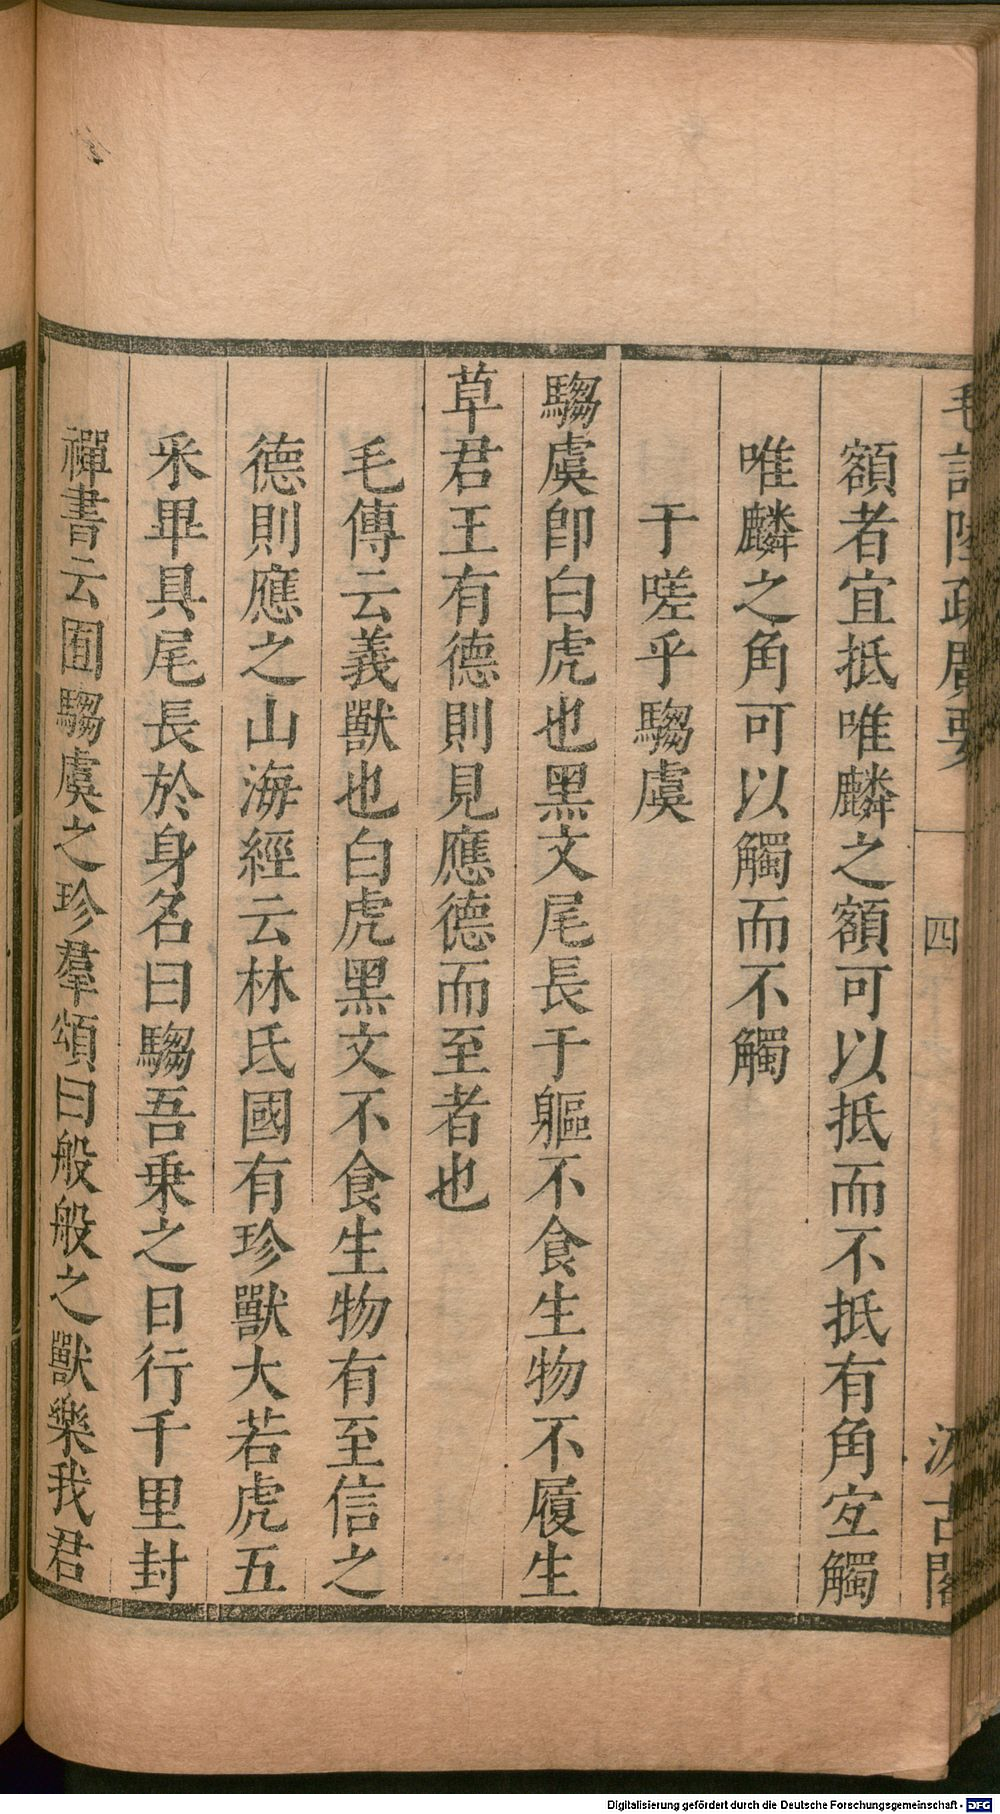 毛詩陸疏廣要
四
汲古閣
額者宜抵唯麟之額可以抵而不抵有角宜觸
唯麟之角可以觸而不觸
于嗟乎騶虞
騶虞卽白虎也黑文尾長于軀不食生物不履生
草君王有德則見應德而至者也
毛傳云義獸也白虎黑文不食生物有至信之
德則應之山海經云林氏國有珍獸大若虎五
釆畢具尾長於身名曰騶吾乗之日行千里封
禪書云囿騶虞之珍羣頌曰般般之獸樂我君
Digitalisierung gefördert durch die Deutsche Forschungsgemeinschaft - DFG